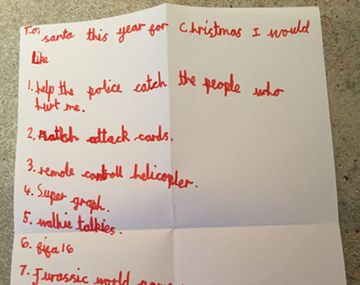 To, santa this year for Christmas I would
like
1. help the police catch the people who
hurt me.
2. match attack cards.
3. remote controll helicopter.
4. Super graph.
5. walkie talkies.
6. fifa 16
7. Jurassic world